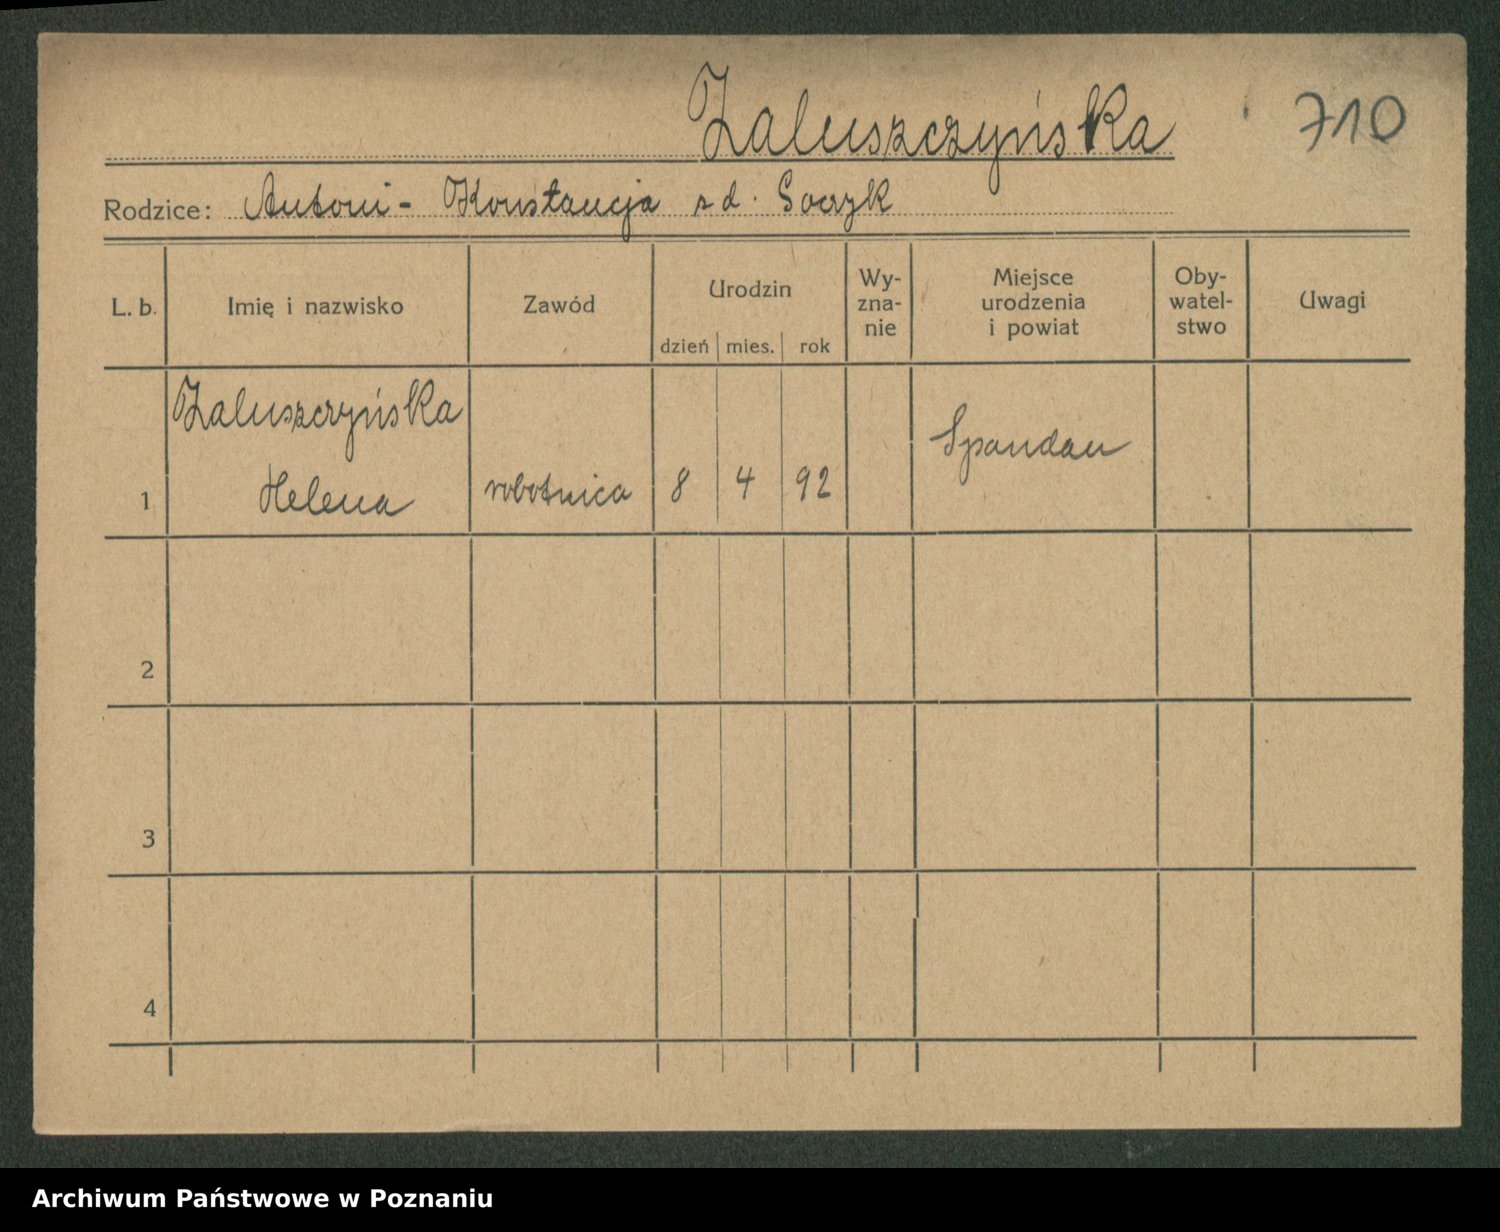 Zaluszczyńska 710
Rodzice: Antoni - Konstancja z d. Soczyk
L. b. Imię i nazwisko Zawód Urodzin dzień mies. rok Wy-zna-nie Miejsce urodzenia i powiat Oby-watel-stwo Uwagi
Zaluszczyńska
1 Helena robotnica 8 4 92 Spandau
2
3
4
Archiwum Państwowe w Poznaniu